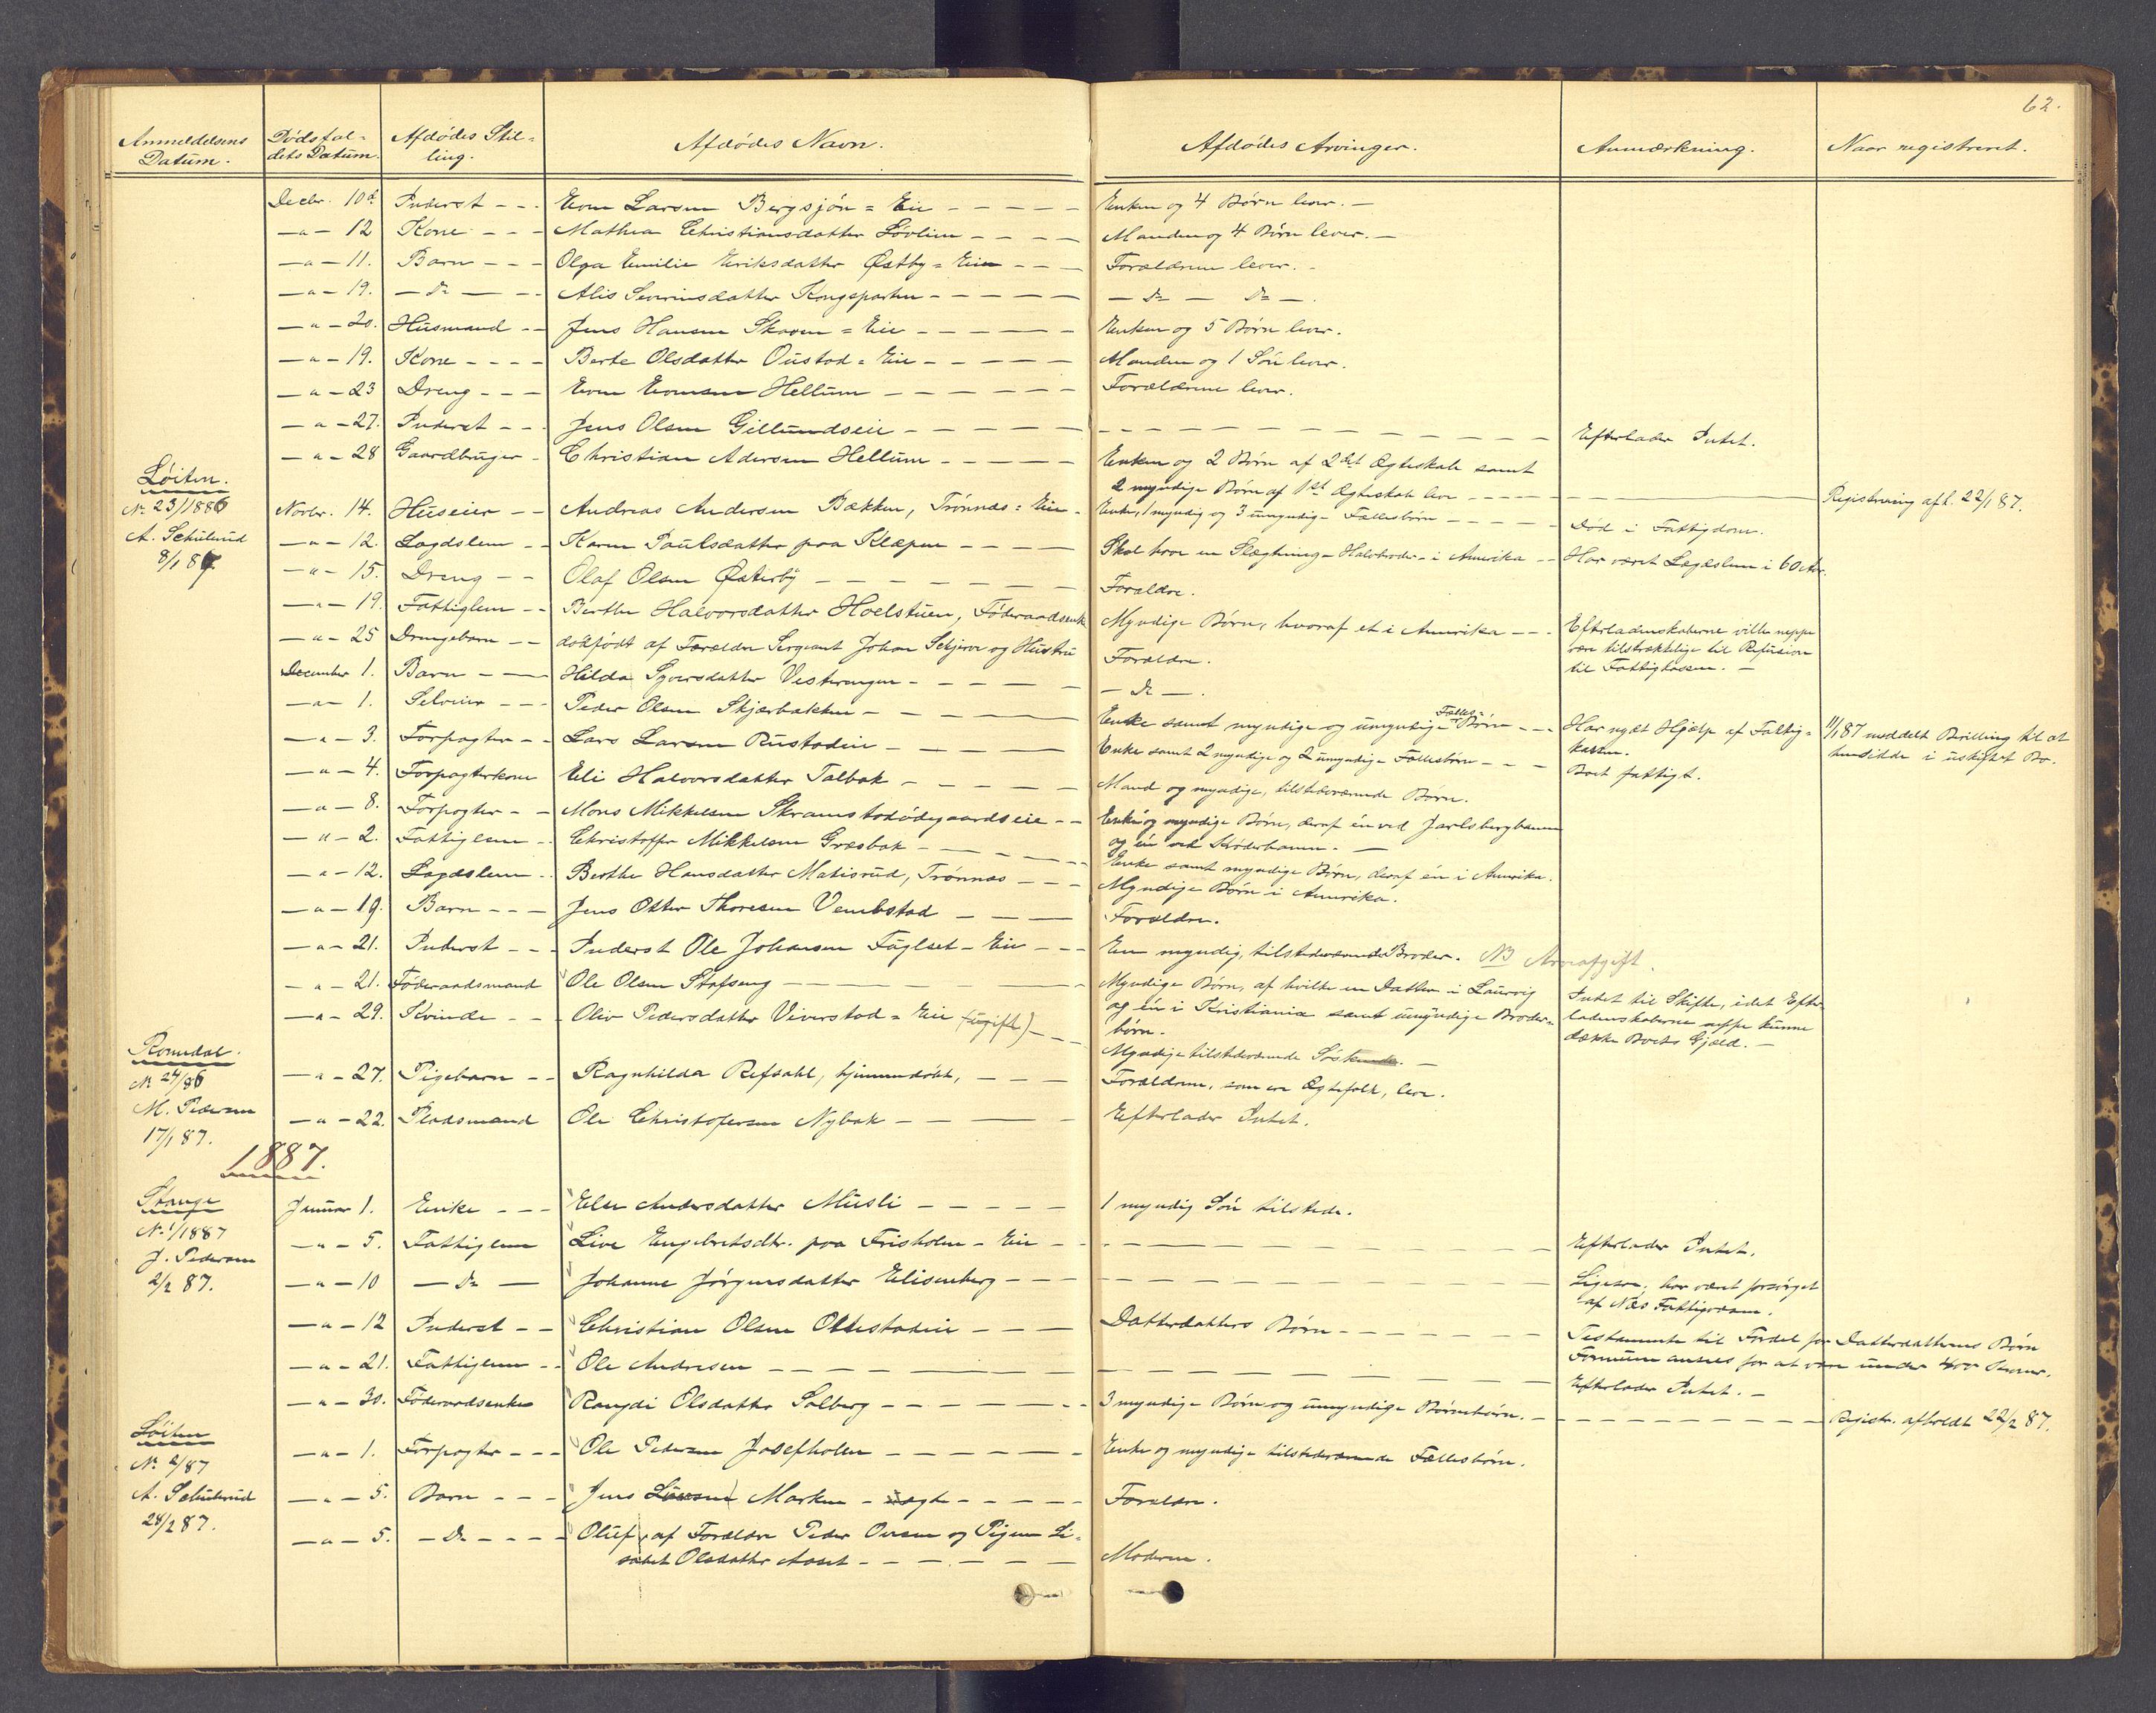 62.
Anmeldelsens Datum.
Dødsfal-
dets Datum.
Afdødes Stil-
ling.
Afdødes Navn.
Afdødes Arvinger.
Anmærkning.
Naar registreret.
Decbr. 10d. Inderst - - Even Larsen Bergsjøn = Eie - - - Enken og 4 Børn lever. -
-"- 12 Kone - - - Mathea Christiansdatter Løvlien - - - Manden og 4 Børn lever. -
-"- 11. Barn - - - Olga Emilie Eriksdatter Østby = Eie - - - Forældrene lever. -
-"- 19. - Do - - - Alis Severinsdatter Kongsparten - - - - Do - Do -.
-"- 20. Husmand - - Jens Hansen Skaven = Eie - - - Enken og 5 Børn lever.
-"- 19. Kone - - - Berte Olsdatter Oustad = Eie - - - Manden og 1 Søn lever.
-"- 23 Dreng - - - Even Evensen Hellum - - - Forældrene lever.
-"- 27. Inderst - - Jens Olsen Gillundseie - - - Efterlader Intet.
-"- 28 Gaardbruger - Christian Adersen Hellum - - - Enken og 2 Børn af 2det Ægteskab samt
2 myndige Børn af 1ste Ægteskab lever - - - Registrering afh. 22/1 87.
Løiten.
No 23/1886
A. Schulerud
8/1 87
Novbr. 14. Huseier - - Andreas Andersen Bækken, Trønnæs = Eie - Enke, 1 myndig og 3 umyndige Fællesbørn - - - Død i Fattigdom.
-"- 12. Lægdslem - - Karen Paulsdatter paa Klæpen - - - Skal have en Slægtning - Halvbroder - i Amerika - - Har været Lægdslem i 60 Aar.
-"- 15. Dreng - - Olaf Olsen Østerby - - - Forældre.
-"- 19. Fattiglem - - Berthe Halvorsdatter Hoelstuen, Føderaadsenke Myndige Børn, hvoraf et i Amerika - - - Efterladenskaberne vilde neppe
være tilstrækkelige til Refusion
til Fattigkassen. -
-"- 25 Drengebarn - - dødfødt af Forældre Sergeant Johan Schjerve og Hustru Forældre.
December 1. Barn - - Hilda Syversdatter Vesterengen - - - - Do -.
-"- 1. Selveier - - - Peder Olsen Skjærbækken - - - Enke samt myndige og umyndige Fælles= Børn - - - Har nydt Hjælp af Fattig=
kassen. 11/1 87 meddelt Bevilling til at
hensidde i uskiftet Bo.
-"- 3. Forpagter - - Lars Larsen Rustadeie - - - Enke samt 2 myndige og 2 umyndige Fællesbørn - - - Boet fattigt.
-"- 4. Forpagterkone Eli Halvorsdatter Talbak - - - Mand og myndige, tilstedeværende Børn.
-"- 8. Forpagter - - Mons Mikkelsen Skramstadødegaardseie - - Enke og myndige Børn, deraf én ved Jarlsbergbanen
og én ved Krøderbanen. -
-"- 2. Fattiglem - - Christoffer Mikkelsen Græsbak - - - Enke samt myndige Børn, deraf én i Amerika.
-"- 12. Lægdslem - - Berthe Hansdatter Matisrud, Trønnæs - - - Myndige Børn i Amerika.
-"- 19. Barn - - - Jens Otter Thoresen Vembstad - - - Forældre.
-"- 21. Inderst - - - Inderst Ole Johansen Fuglset - Eie - - - En myndig, tilstedeværende Broder. NB Arveafgift.
-"- 21. Føderaadsmand Ole Olsen Stafseng - - - Myndige Børn, af hvilke en Datter i Laurvig
og én i Kristiania samt umyndige Broder=
børn. Intet til Skifte, idet Efter-
ladenskaberne neppe kunne
dække Boets Gjæld. -
-"- 29. Kvinde - - - Oliv Pedersdatter Viverstad = Eie (ugift) - Myndige tilstedeværende Søskende. -
Romedal.
No 24/86
M. Pedersen
17/1 87.
-"- 27. Pigebarn - - Ragnhilda Refsahl, hjemmedøbt, - - - Forældrene, som ere Ægtefolk, lever.
-"- 22. Pladsmand Ole Christofersen Nybak - - - Efterlader Intet.
1887.
Stange
No 1/1887
J. Pedersen
2/2 87.
Januar 1. Enke - - - Else Andersdatter Musli - - - 1 myndig Søn tilstede.
-"- 5. Fattiglem Live Engebretsdtr. paa Frisholm - Eie - - - Efterlader Intet.
-"- 10 - Do - Johanne Jørgensdatter Elisenberg - - - Ligesaa; har været forsørget
af Næs Fattigvæsen.
-"- 12 Inderst - - Christian Olsen Ottestadeie - - - Datterdatters Børn - - - Testamente til Fordel for Datterdatterens Børn
Formuen antages for at være under 400 Kroner.
-"- 21. Fattiglem - - Ole Andresen - - - Efterlader Intet. -
-"- 30. Føderaadsenke Rangdi Olsdatter Solberg - - - 3 myndige Børn og umyndige Børnebørn. - - - Registr. afholdt 22/2 87.
Løiten
No 2/87
A. Schulerud
28/2 87.
-"- 1. Forpagter - - - Ole Pedersen Josefholen - - - Enke og myndige tilstedeværende Fællesbørn.
-"- 5. Barn - - - Jens Marken - uægte - - - Forældre.
-"- 5. - Do - - - Oluf, af Forældre Peder Oversen og Pigen Li-
sabet Olsdatter Aaset - - - Moderen.